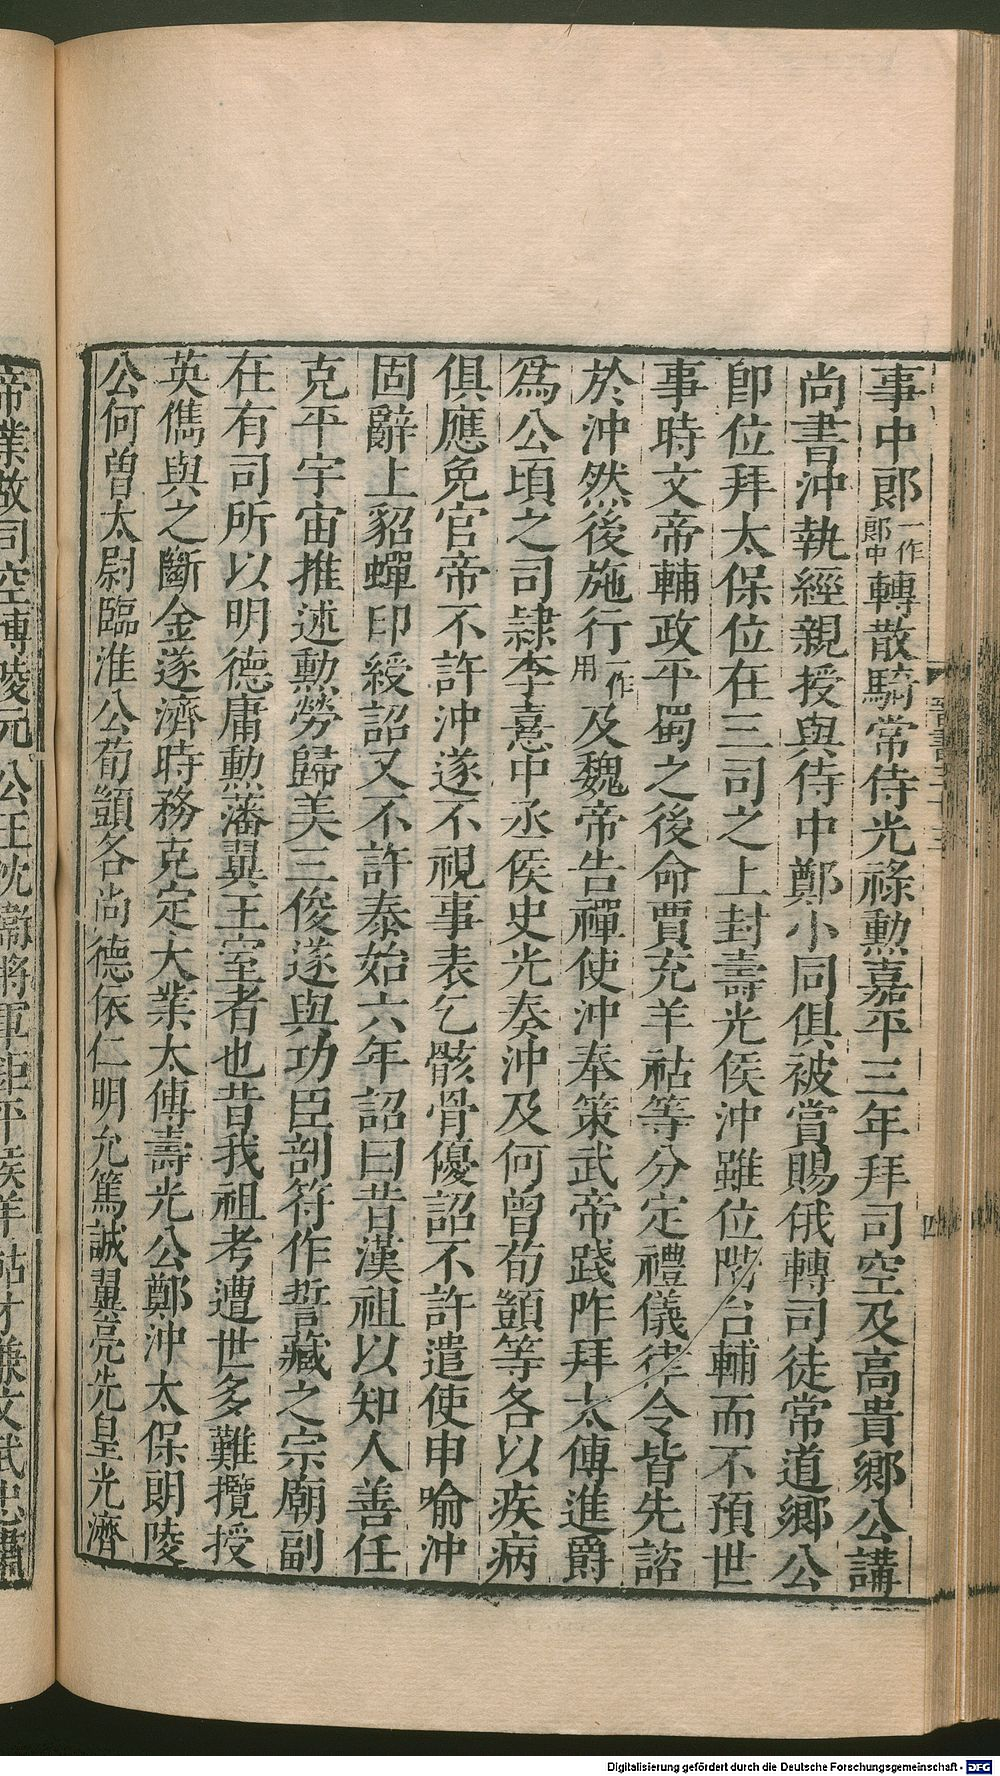 事中郎一作郎中轉散騎常侍光祿勳嘉平三年拜司空及高貴鄉公講
尚書沖執經親授與侍中鄭小同俱被賞賜俄轉司徒常道鄉公
即位拜太保位在三司之上封壽光侯沖雖位階台輔而不預世
事時文帝輔政平蜀之後命賈充羊祜等分定禮儀律令皆先諮
於沖然後施行一作用及魏帝告禪使沖奉策武帝踐阼拜太傅進爵
為公頃之司隸李憙中丞侯史光奏沖及何曾荀顗等各以疾病
俱應免官帝不許沖遂不視事表乞骸骨優詔不許遣使申喻沖
固辭上貂蟬印綬詔又不許泰始六年詔曰昔漢祖以知人善任
克平宇宙推述勳勞歸美三俊遂與功臣剖符作誓藏之宗廟副
在有司所以明德庸勳藩翼王室者也昔我祖考遭世多難攬授
英儁與之斷金遂濟時務克定大業太傅壽光公鄭沖太保朗陵
公何曾太尉臨淮公荀顗各尚德依仁明允篤誠翼亮先皇光濟
帝業故司空博陵元公王沈衞將軍鉅平侯羊祜才兼文武忠肅
四
Digitalisierung gefördert durch die Deutsche Forschungsgemeinschaft - DFG